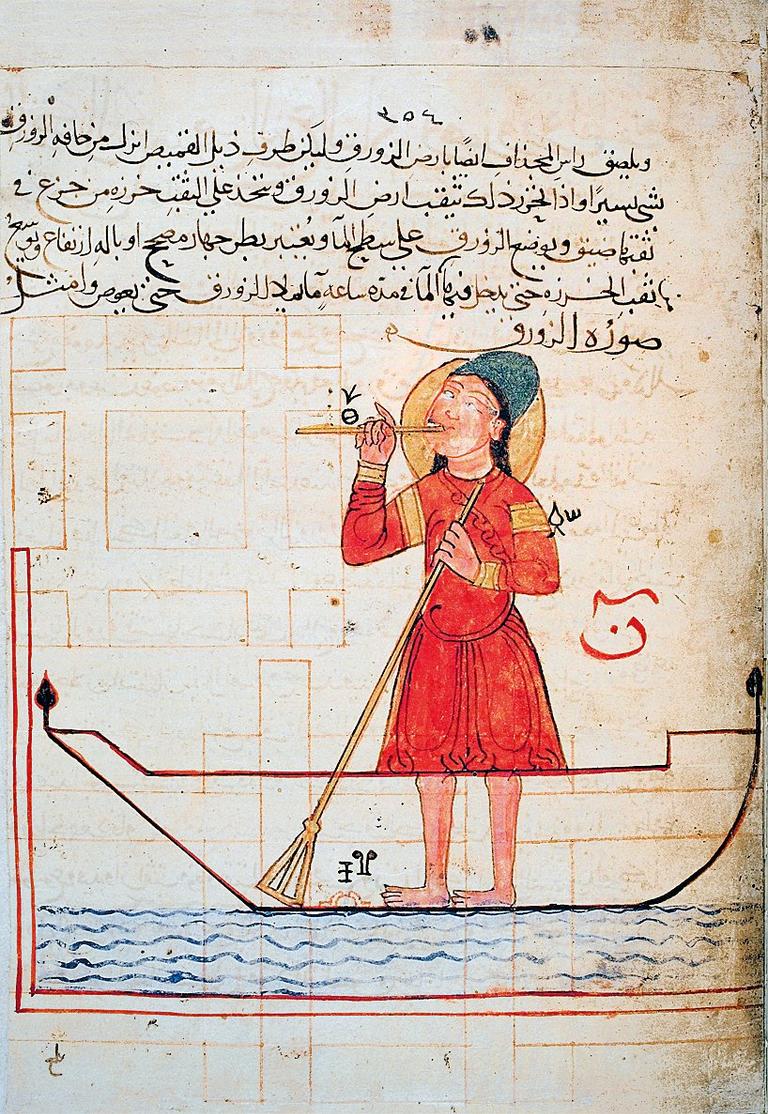 ٢٥٤
ويلصق راس المجذاف ايضا بارض الزورق وليكن طرف ذيل القميص انزل من حافة الزورق
شي يسير او اذا تحرز ذلك تثقب ارض الزورق ويتخذ على الثقب خرزه من جزع في
ثقبها ضيق ويوضع الزورق على سطح الماء ويعتبر بطرجهار مصحح او باله ارتفاع ويوسع
ثقب الخرزه حتى يدخل فيها الما في مدة ساعه ما يملا الزورق حتى يغوص وامثل
صورة الزورق
ن